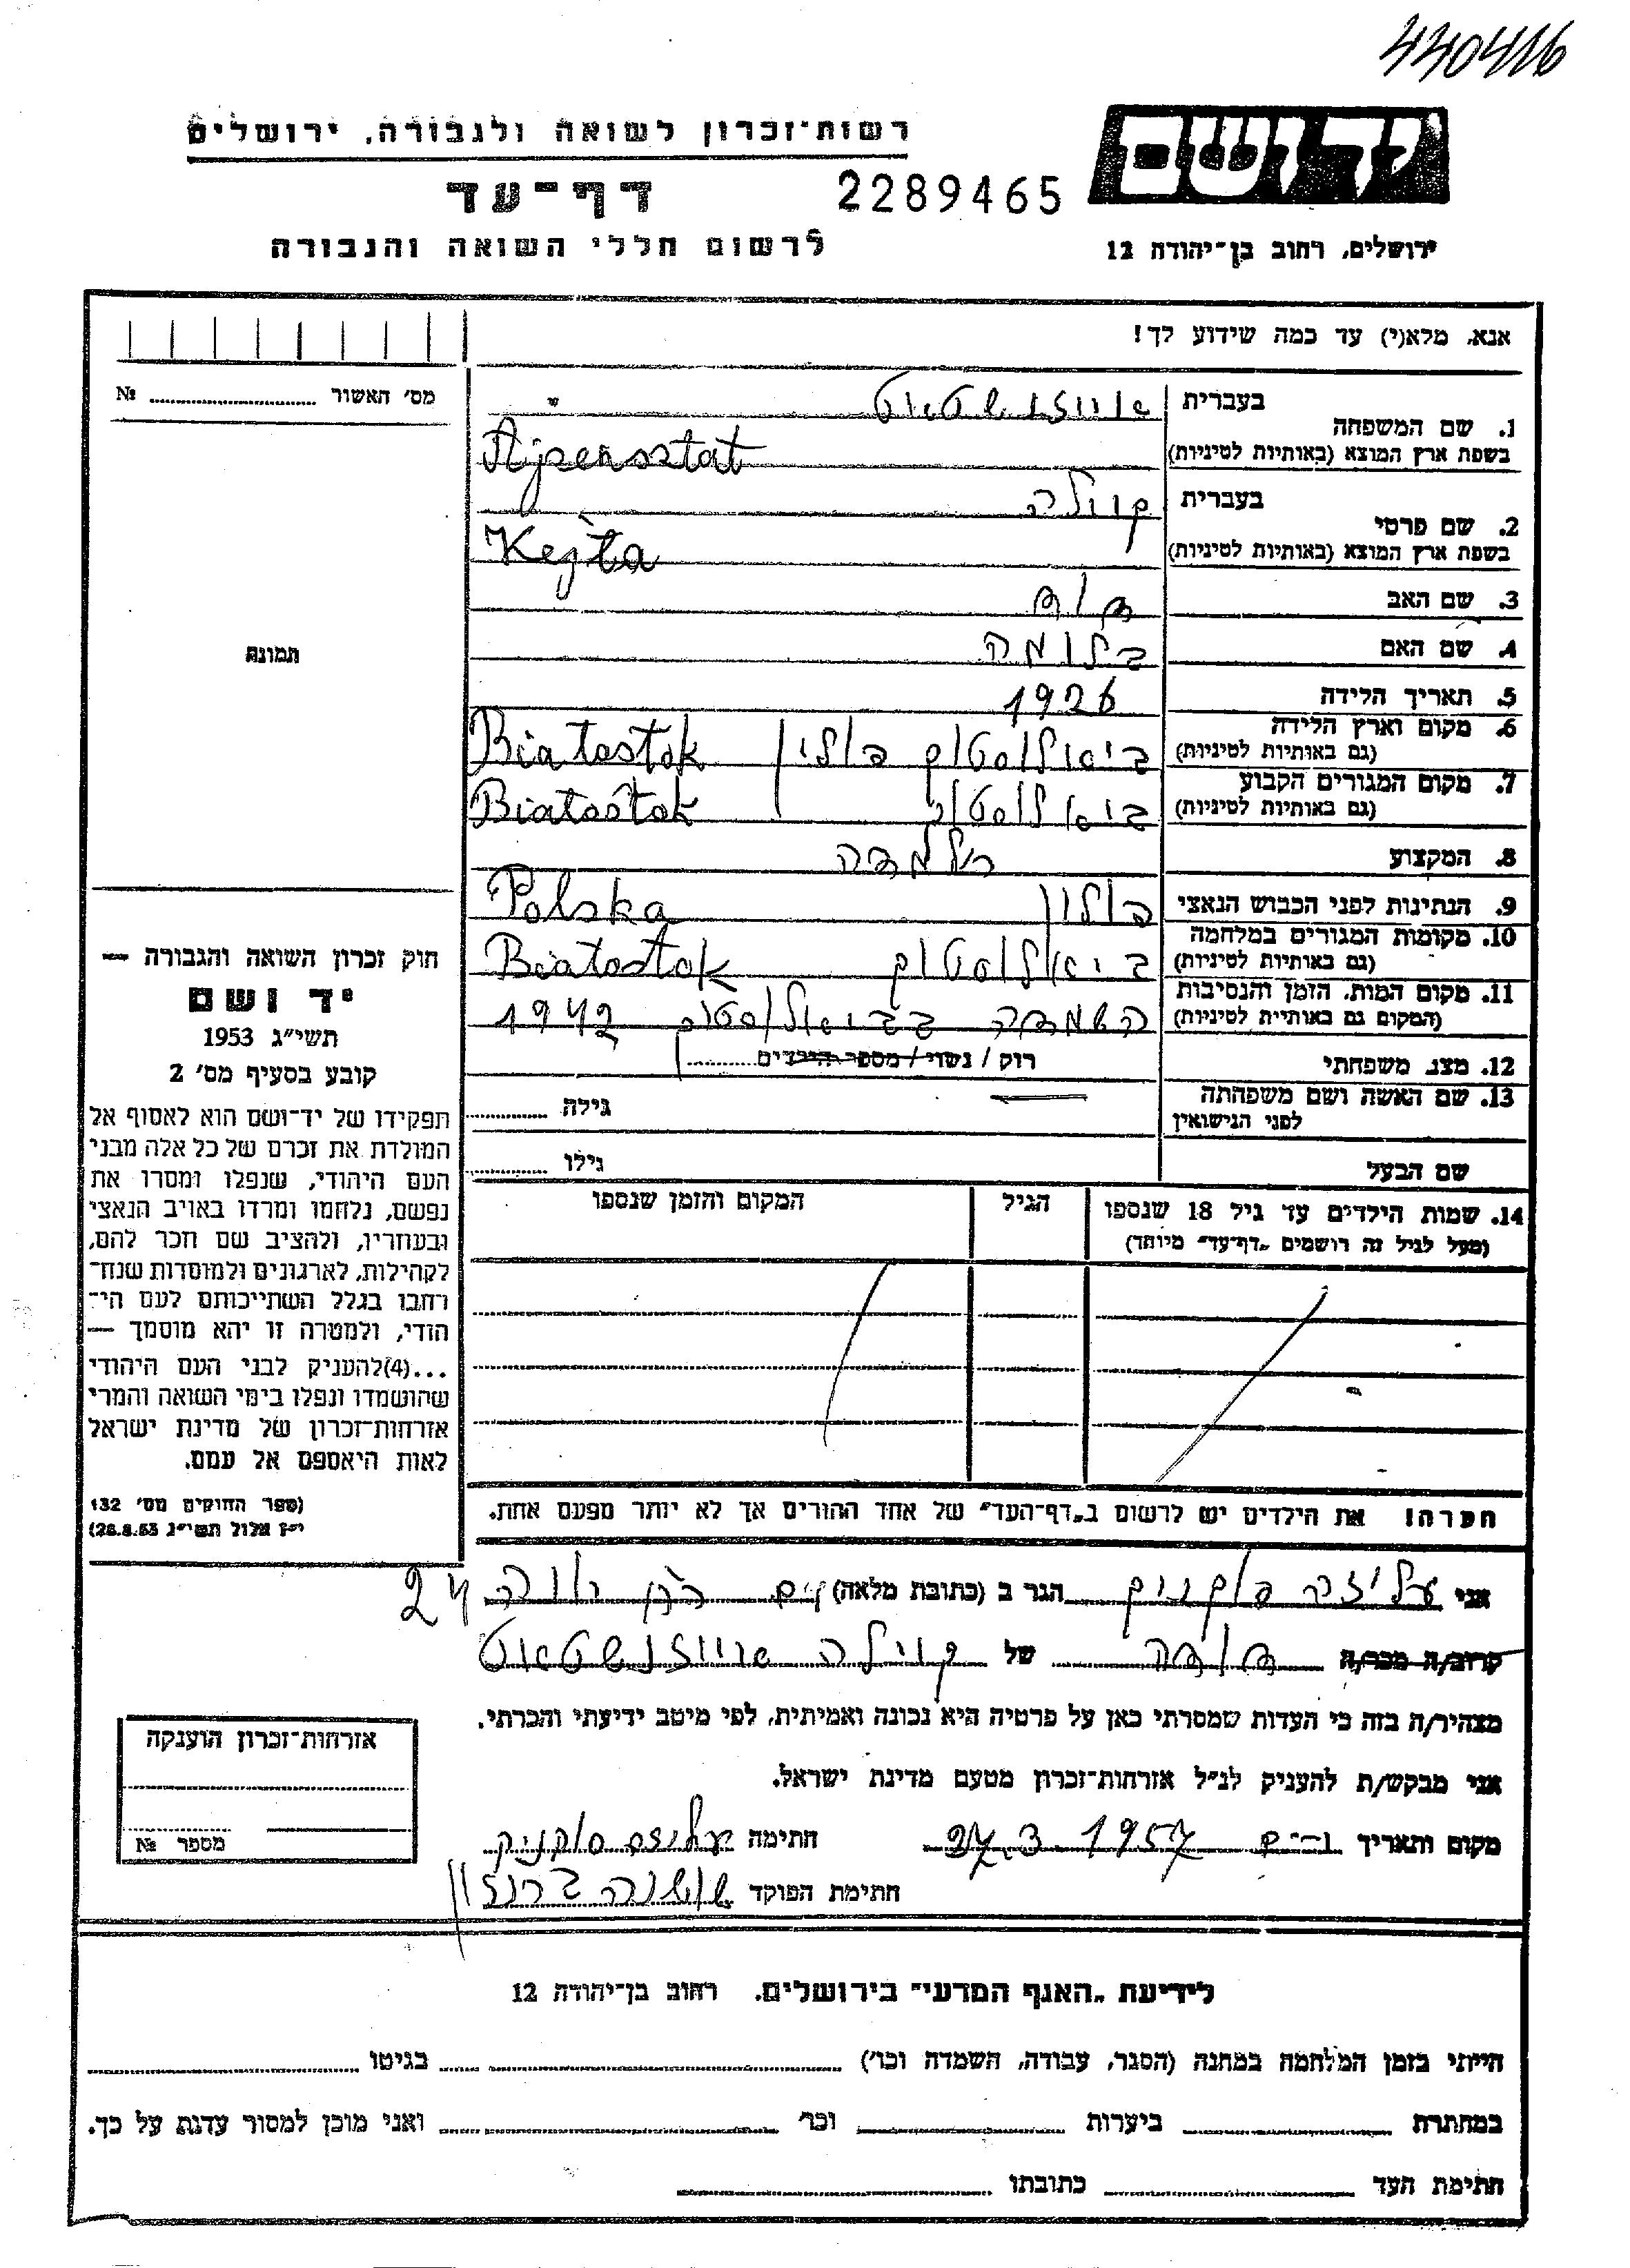 440416
יד ושם
רשות־זכרון לשואה ולגבורה, ירושלים
דף־עד
2289465
לרשום חללי השואה והגבורה
ירושלים, רחוב בן־יהודה 12
אנא, מלא(י) עד כמה שידוע לך!
מס׳ האשור № 
1. שם המשפחה
בעברית אייזנשטאט
בשפת ארץ המוצא (באותיות לטיניות) Ajzensztat
2. שם פרטי
בעברית קיילה
בשפת ארץ המוצא (באותיות לטיניות) Kejła
3. שם האב
4. שם האם בלומה
5. תאריך הלידה 1926
6. מקום וארץ הלידה (גם באותיות לטיניות) ביאליסטוק פולין Białostok
7. מקום המגורים הקבוע (גם באותיות לטיניות) ביאליסטוק Białostok
8. המקצוע תלמידה
9. הנתינות לפני הכבוש הנאצי פולין Polska
10. מקומות המגורים במלחמה (גם באותיות לטיניות) ביאליסטוק Białostok
11. מקום המות, הזמן והנסיבות (המקום גם באותיות לטיניות) השמדה בביאליסטוק 1942
12. מצב משפחתי רוק / נשוי / מספר הילדים
13. שם האשה ושם משפחתה לפני הנישואין גילה
שם הבעל גילו
14. שמות הילדים עד גיל 18 שנספו
(מעל לגיל זה רושמים „דף־עד״ מיוחד)
הגיל
המקום והזמן שנספו
תמונה
חוק זכרון השואה והגבורה —
יד ושם
תשי״ג 1953
קובע בסעיף מס׳ 2
תפקידו של יד־ושם הוא לאסוף אל
המולדת את זכרם של כל אלה מבני
העם היהודי, שנפלו ומסרו את
נפשם, נלחמו ומרדו באויב הנאצי
ובעוזריו, ולהציב שם וזכר להם,
לקהילות, לארגונים ולמוסדות שנח־
רבו בגלל השתייכותם לעם הי־
הודי, ולמטרה זו יהא מוסמך —
...(4)להעניק לבני העם היהודי
שהושמדו ונפלו בימי השואה והמרי
אזרחות־זכרון של מדינת ישראל
לאות היאספם אל עמם.
(ספר החוקים מס׳ 132
י״ז אלול תשי״ג 28.8.53)
הערה! את הילדים יש לרשום ב„דף־העד״ של אחד ההורים אך לא יותר מפעם אחת.
אני עליזה הגר ב (כתובת מלאה) 24
קרוב/ה מכר/ה של קיילה אייזנשטאט
מצהיר/ה בזה כי העדות שמסרתי כאן על פרטיה היא נכונה ואמיתית, לפי מיטב ידיעתי והכרתי.
אני מבקש/ת להעניק לנ״ל אזרחות־זכרון מטעם מדינת ישראל.
מקום ותאריך 1957 חתימה
חתימת הפוקד שושנה
אזרחות־זכרון הוענקה
מספר №
לידיעת „האגף המדעי״ בירושלים. רחוב בן־יהודה 12
הייתי בזמן המלחמה במחנה (הסגר, עבודה, השמדה וכו׳) בגיטו
במחתרת ביערות וכו׳ ואני מוכן למסור עדות על כך.
חתימת העד כתובתו